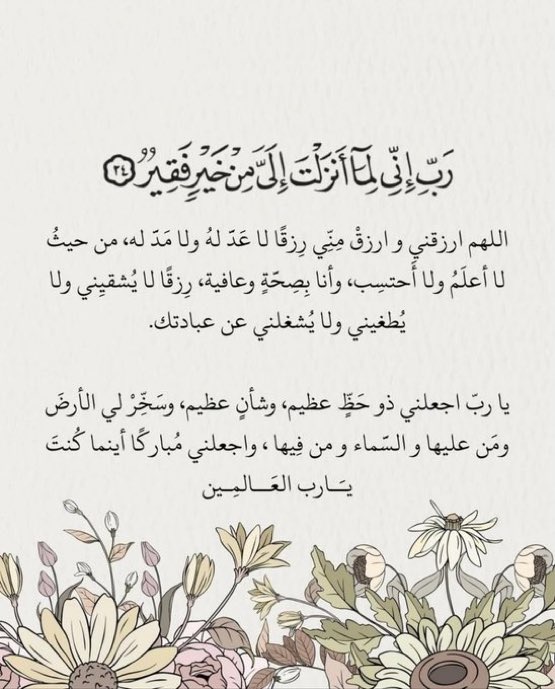 رَبِّ إِنِّي لِمَآ أَنزَلْتَ إِلَىَّ مِنْ خَيْرٍ فَقِيرٌ ٢٤
اللهم ارزقني و ارزقْ مِنِّي رِزقًا لا عَدّ لهُ ولا مَدّ له، من حيثُ
لا أعلَمُ ولا أحتسِب، وأنا بِصِحّةٍ وعافية، رِزقًا لا يُشقيِني ولا
يُطغيني ولا يُشغلني عن عبادتك.
يا ربّ اجعلني ذو حَظٍّ عظيم، وشأنٍ عظيم، وسَخِّرْ لي الأرضَ
ومَن عليها و السّماء و من فِيها ، واجعلني مُباركًا أينما كُنتَ
يَـــارب العَـــالمِـــين